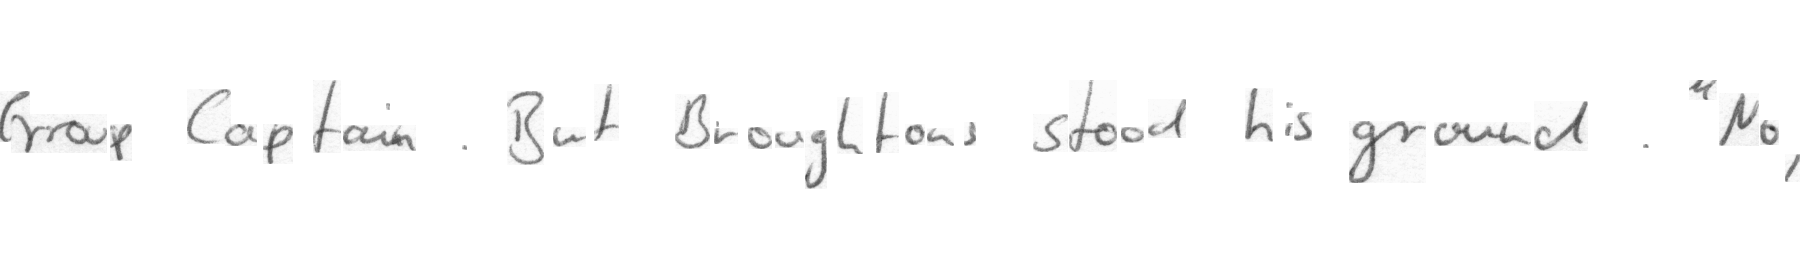 Group Captain. But Broughtons stood his ground. "No,